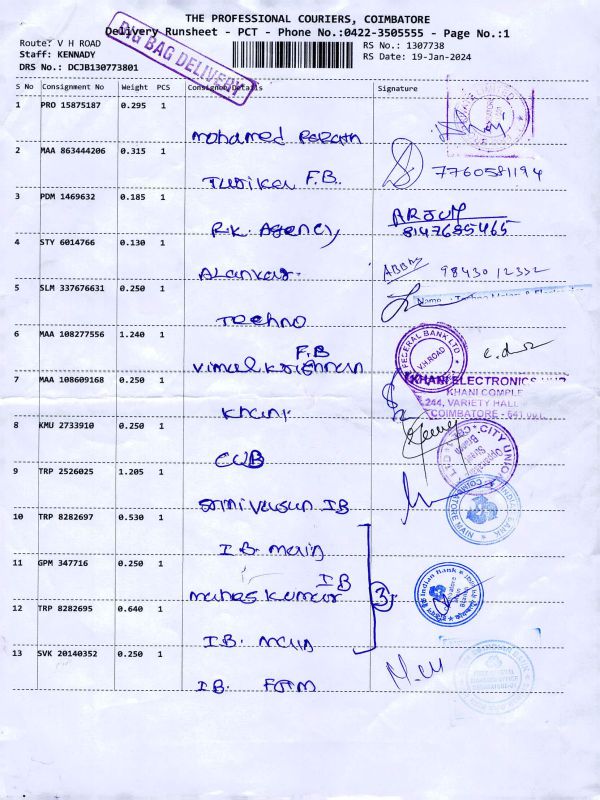 THE PROFESSIONAL COURIERS, COIMBATORE
Delivery Runsheet - PCT - Phone No.:0422-3505555 - Page No.:1
BIG BAG DELIVERY
Route: V H ROAD
RS No.: 1307738
Staff: KENNADY
RS Date: 19-Jan-2024
DRS No.: DCJB130773801
S No Consignment No Weight PCS Consignee Details Signature
1 PRO 15875187 0.295 1
Mohamed
2 MAA 863444206 0.315 1
F.B. 7760581194
3 PDM 1469632 0.185 1
R.K. Agency ARJUN
8147685465
4 STY 6014766 0.130 1
Alankar ABBAS 9843012332
5 SLM 337676631 0.250 1
Techno Name :
6 MAA 108277556 1.240 1
F.B
Vimal Krishnan FEDERAL BANK LTD V.H.ROAD
7 MAA 108609168 0.250 1
Khani KHANI ELECTRONICS
KHANI COMPLE
244, VARIETY HALL
COIMBATORE - 641
8 KMU 2733910 0.250 1
CUB CITY UNION
9 TRP 2526025 1.205 1
Srinivasan IB
10 TRP 8282697 0.530 1
I.B. Main COIMBATORE MAIN
11 GPM 347716 0.250 1
IB
Mahes Kumar 3 Indian Bank
12 TRP 8282695 0.640 1
I.B. Main
13 SVK 20140352 0.250 1
I.B.